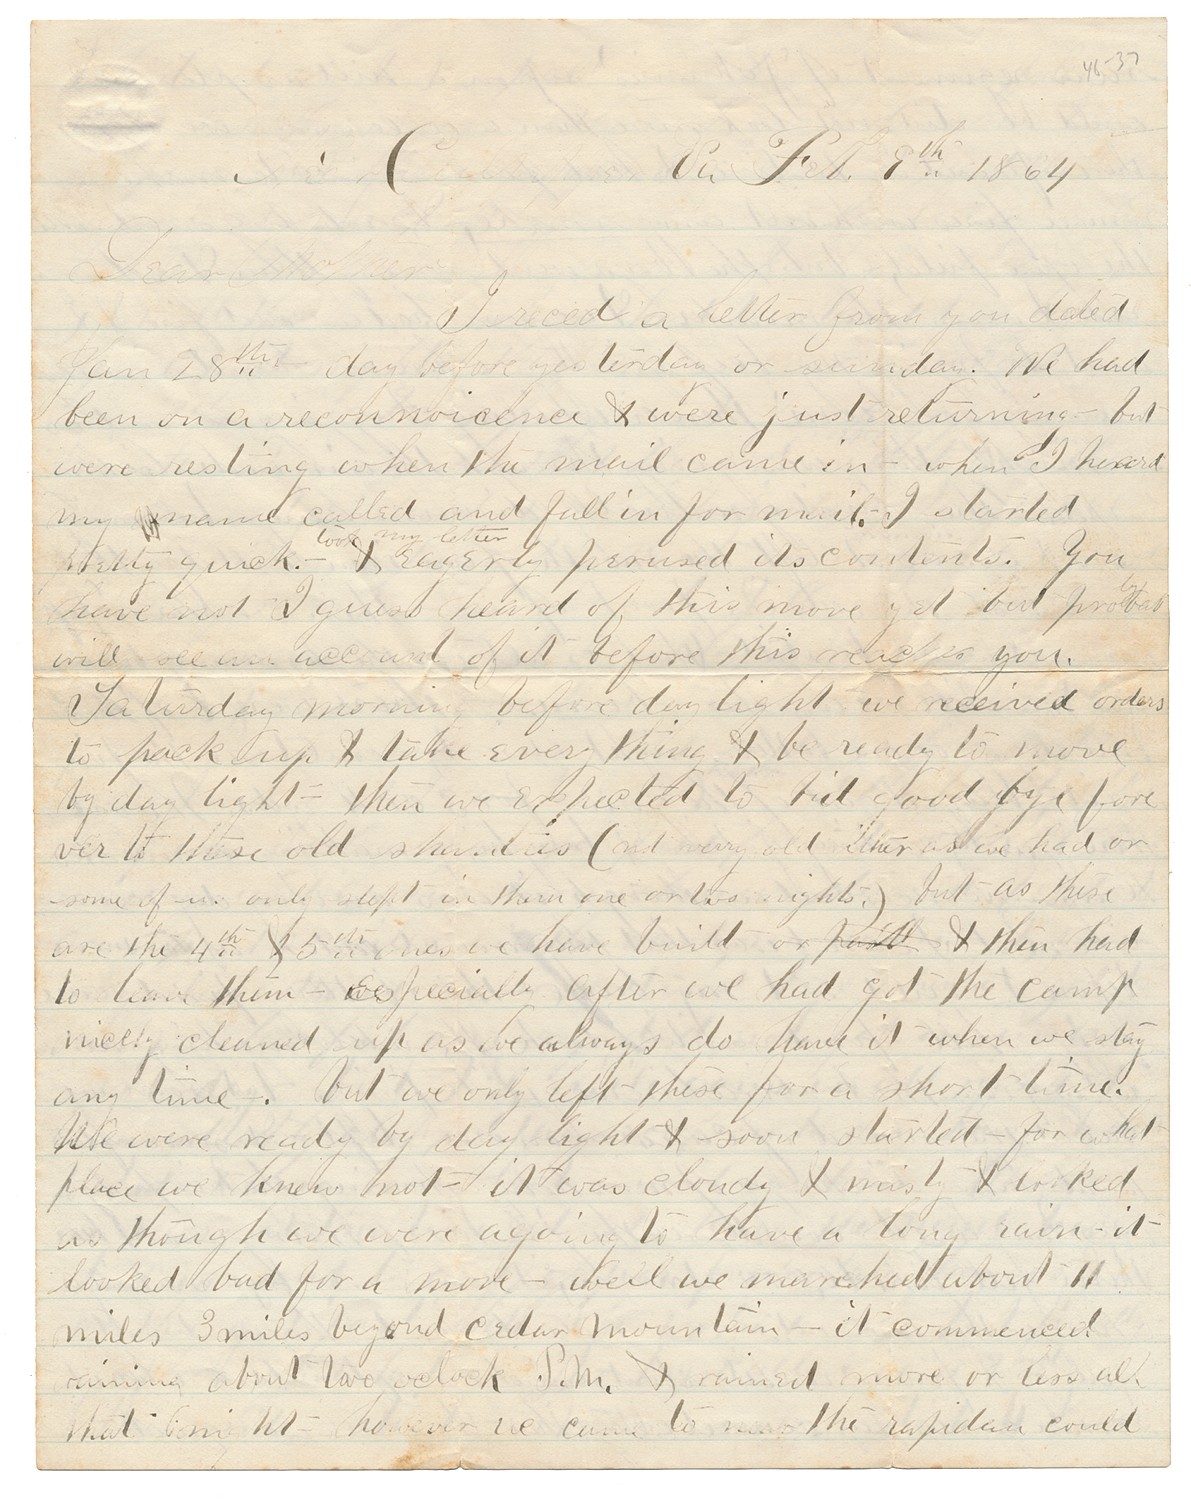 46-37
Va Feb. 8th 1864
Dear Mother
I reced a letter from you dated
Jan 28th day before yesterday or sunday. We had
been on a reconnoicence & were just returning - but
were resting when the mail came in - when I heard
my name called and fall in for mail. I started
pretty quick. - took my letter & eagerly perused its contents. You
have not I guess heard of this move yet but probbab
will see an account of it before this reaches you.
Saturday morning before day light we received orders
to pack up & take every thing & be ready to move
by day light - then we expected to bid good bye fore
ver to these old shanties (not very old either as we had or
some of us only slept in them one or two nights.) but as these
are the 4th & 5th ones we have built or & then had
to leave them - especially after we had got the camp
nicely cleaned up as we always do have it when we stay
any time -. but we only left these for a short time.
We were ready by day light & soon started - for what
place we knew not - it was cloudy & misty & looked
as though we were agoing to have a long rain - it
looked bad for a move - well we marched about 11
miles 3 miles beyond cedar mountain - it commenced
raining about two oclock P.M. & rained more or less all
that night - however we came to near the rapidan could